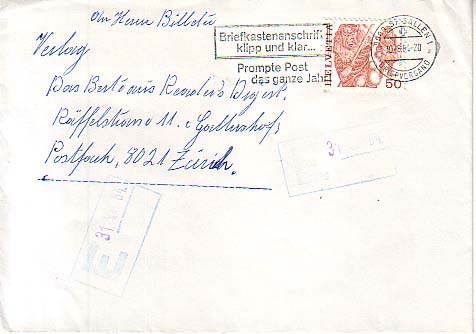 An Herrn Billeter
Verlag
Das Beste aus Reader's Digest.
Räffelstrasse 11. « Gallushof»
Postfach, 8021 Zürich.
Briefkastenanschrift
klipp und klar...
Prompte Post
das ganze Jahr
HELVETIA
50
ST. GALLEN 1
BRIEFVERSAND
E
31
E
31